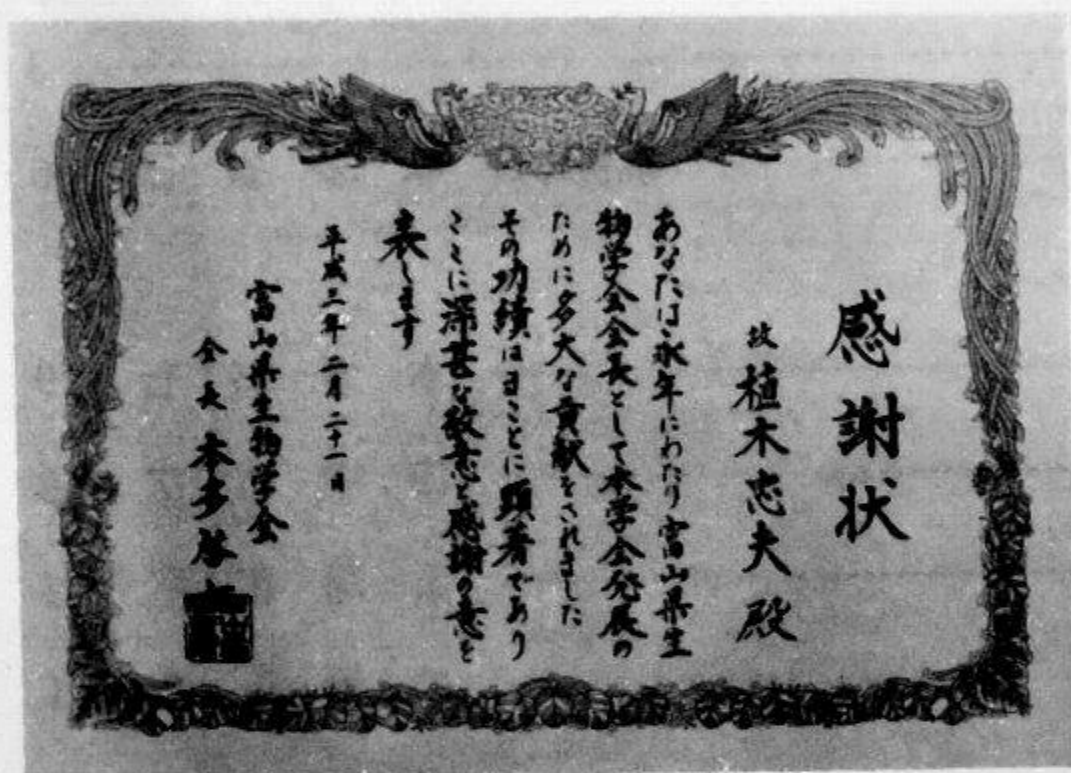 感謝状
故 植木忠夫 殿
あなたは永年にわたり富山県生
物学会会長として本学会発展の
ために多大な貢献をされました
その功績はまことに顕著であり
ここに深甚な敬意と感謝の意を
表します
平成三年二月二十一日
富山県生物学会
会長 本多啓